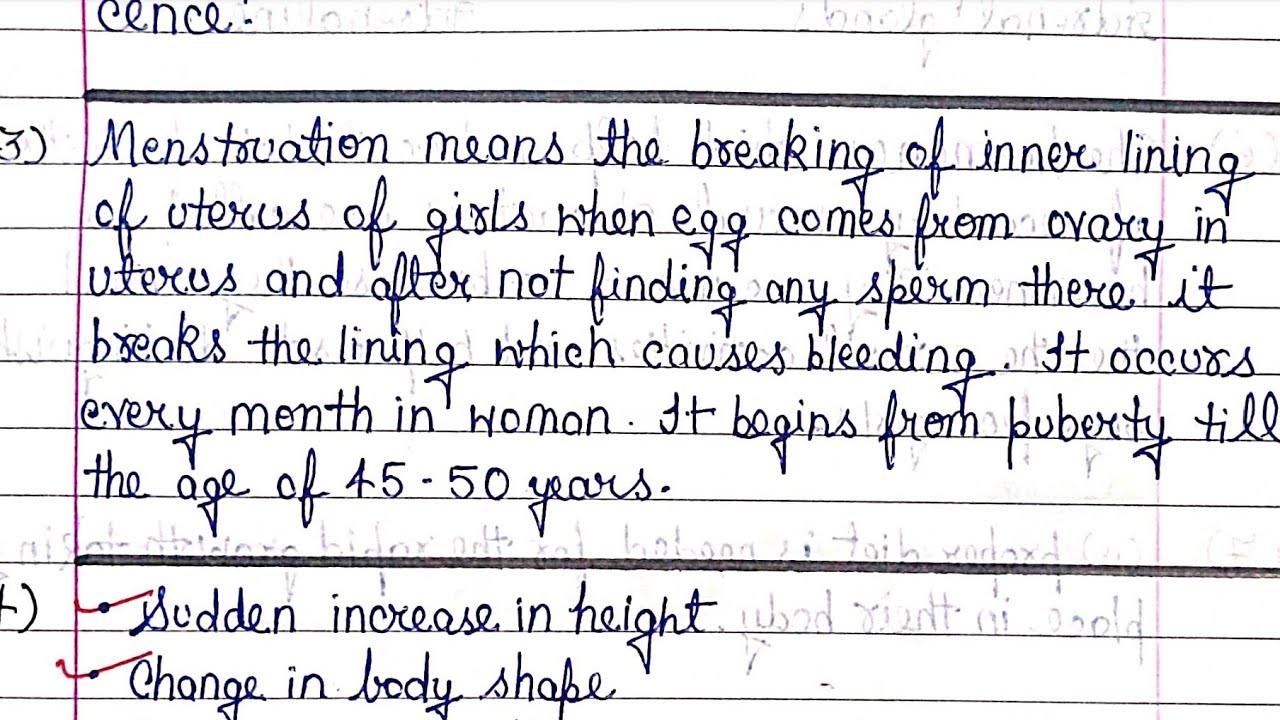 cence.
3) Menstruation means the breaking of inner lining
of uterus of girls when egg comes from ovary in
uterus and after not finding any sperm there it
breaks the lining which causes bleeding. It occurs
every month in woman. It begins from puberty till
the age of 45-50 years.
• Sudden increase in height
• Change in body shape